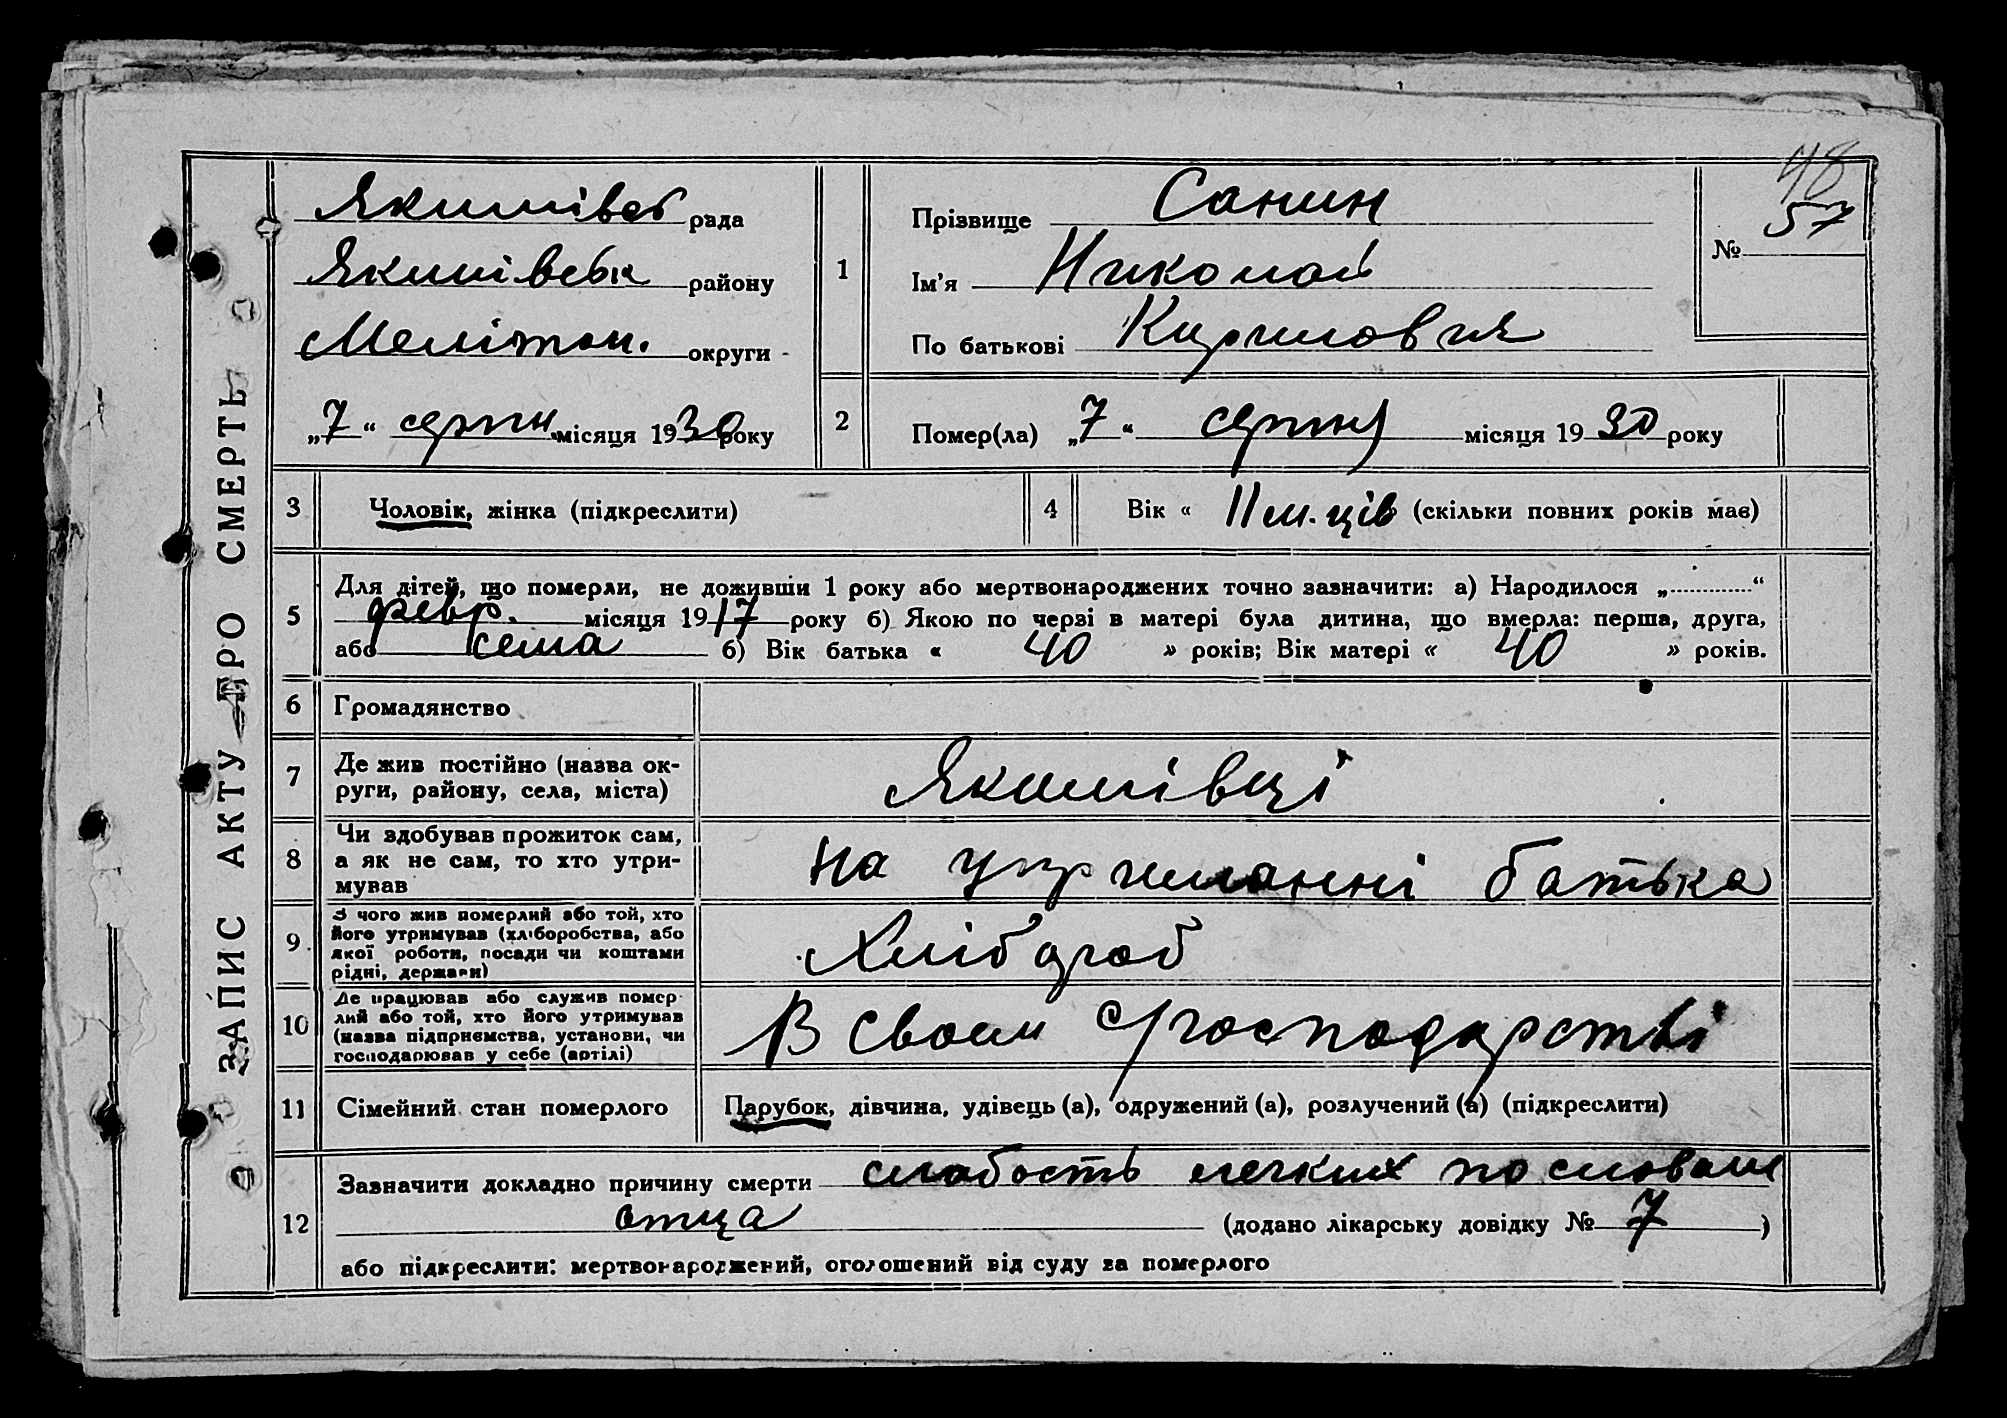 ЗАПИС АКТУ ПРО СМЕРТЬ
Якимівсь рада
Якимівськ району
Мелітоп. округи
„7“ серпн. місяця 1930 року
48
№ 57
1 Прізвище Санин
Ім’я Николай
По батькові Кирилович
2 Помер(ла) „7“ серпня місяця 1930 року
3 Чоловік, жінка (підкреслити)
4 Вік « 11 м.ців (скільки повних років має)
5 Для дітей, що померли, не доживши 1 року або мертвонароджених точно зазначити: а) Народилося „............“
февр. місяця 1917 року б) Якою по черзі в матері була дитина, що вмерла: перша, друга,
або сема б) Вік батька « 40 » років; Вік матері « 40 » років.
6 Громадянство
7 Де жив постійно (назва ок-
руги, району, села, міста) Якимівці
8 Чи здобував прожиток сам,
а як не сам, то хто утри-
мував на утриманні батька
9. З чого жив померлий або той, хто
його утримував (хліборобства, або
якої роботи, посади чи коштами
рідні, держави) Хлібороб
10 Де працював або служив помер-
лий або той, хто його утримував
(назва підприємства, установи, чи
господарював у себе (артілі) В своем господарстві
11 Сімейний стан померлого Парубок, дівчина, удівець (а), одружений (а), розлучений (а) (підкреслити)
12 Зазначити докладно причину смерти слабость легких по словам
отца (додано лікарську довідку № 7)
або підкреслити: мертвонароджений, оголошений від суду за померлого